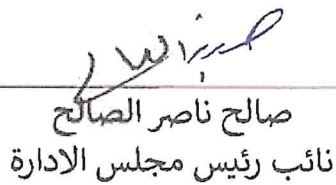 صالح ناصر الصالح
نائب رئيس مجلس الادارة